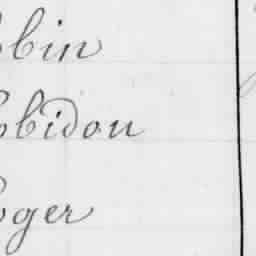 obin
obidou
oger